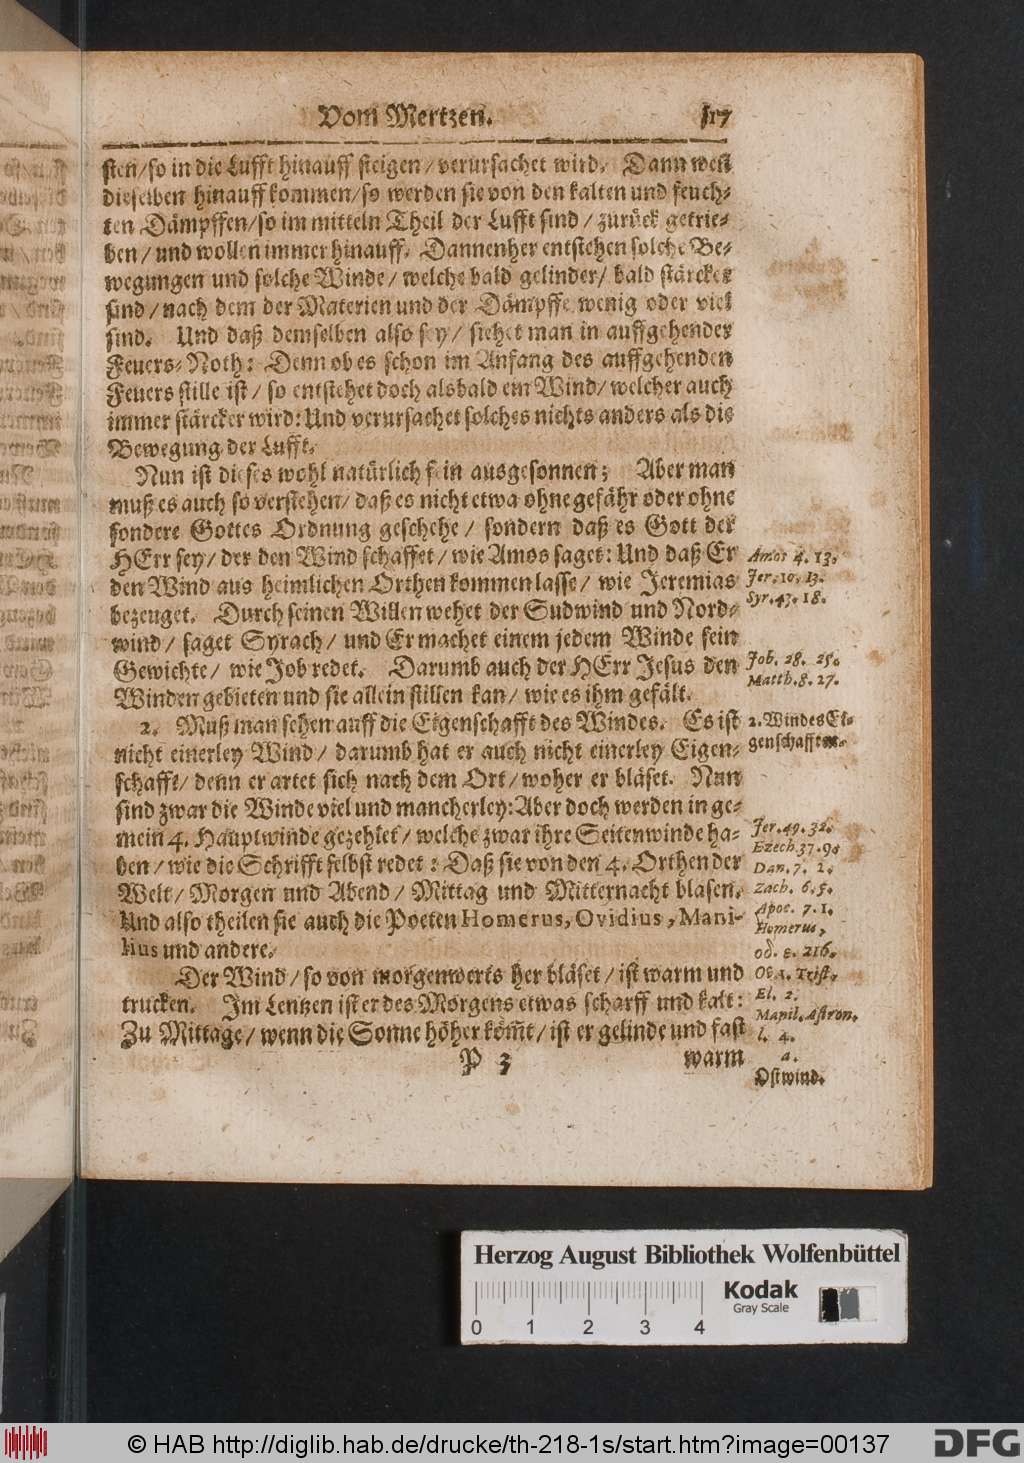 Vom Mertzen. 117
sten/so in die Lufft hinauff steigen/verursachet wird. Dann weil
dieselben hinauff kommen/so werden sie von den kalten und feuch-
ten Dämpffen/so im mitteln Theil der Lufft sind/zurück getrie-
ben/und wollen immer hinauff. Dannenher entstehen solche Be-
wegungen und solche Winde/welche bald gelinder/bald stärcker
sind/nach dem der Materien und der Dämpffe wenig oder viel
sind. Und daß demselben also sey/siehet man in auffgehender
Feuers-Noth: Denn ob es schon im Anfang des auffgehenden
Feuers stille ist/so entstehet doch alsbald ein Wind/welcher auch
immer stärcker wird: Und verursachet solches nichts anders als die
Bewegung der Lufft.
Nun ist dieses wohl natürlich fein ausgesonnen; Aber man
muß es auch so verstehen/daß es nicht etwa ohne gefähr oder ohne
sondere Gottes Ordnung geschehe/sondern daß es Gott der
HErr sey/der den Wind schaffet/wie Amos saget: Und daß Er
den Wind aus heimlichen Orthen kommen lasse/wie Jeremias
bezeuget. Durch seinen Willen wehet der Sudwind und Nord-
wind/saget Syrach/und Er machet einem jedem Winde sein
Gewichte/wie Job redet. Darumb auch der HErr Jesus den
Winden gebieten und sie allein stillen kan/wie es ihm gefält.
2. Muß man sehen auff die Eigenschafft des Windes. Es ist
nicht einerley Wind/darumb hat er auch nicht einerley Eigen-
schafft/denn er artet sich nach dem Ort/woher er bläset. Nun
sind zwar die Winde viel und mancherley: Aber doch werden in ge-
mein 4. Hauptwinde gezehlet/welche zwar ihre Seitenwinde ha-
ben/wie die Schrifft selbst redet: Daß sie von den 4. Orthen der
Welt/Morgen und Abend/Mittag und Mitternacht blasen.
Und also theilen sie auch die Poeten Homerus, Ovidius, Mani-
lius und andere.
Der Wind/so von morgenwerts her bläset/ist warm und
trucken. Im Lentzen ist er des Morgens etwas scharff und kalt:
Zu Mittage/wenn die Sonne höher kom̃t/ist er gelinde und fast
P 3 warm
Amos 4. 13.
Jer. 10, 13.
Syr. 43. 18.
Job. 28. 25.
Matth. 8. 27.
2. Windes Ei-
genschafften.
Jer. 49. 32.
Ezech. 37. 9.
Dan. 7. 2.
Zach. 6. 5.
Apoc. 7. 1.
Homerus,
od. ε. 216.
Trist.
El. 2.
Manil. Astron.
l. 4.
a.
Ostwind.
Herzog August Bibliothek Wolfenbüttel
Kodak
Gray Scale
0 1 2 3 4
© HAB http://diglib.hab.de/drucke/th-218-1s/start.htm?image=00137
DFG